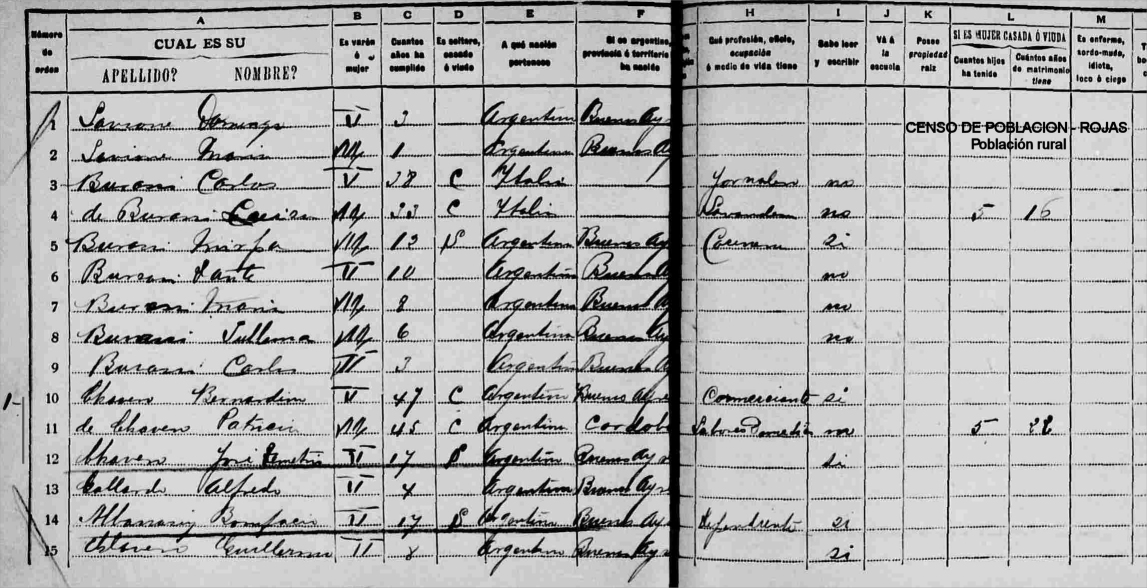 A B C D E F H I J K L M
Número de orden CUAL ES SU APELLIDO? NOMBRE? Es varón ó mujer Cuantos años ha cumplido Es soltero, casado ó viudo A qué nación pertenece Si es argentino, provincia ó territorio ha nacido Qué profesión, oficio, ocupación ó medio de vida tiene Sabe leer y escribir VÁ á la escuela Posee propiedad raíz SI ES MUJER CASADA Ó VIUDA Cuantos hijos ha tenido Cuántos años de matrimonio tiene Es enfermo, sordo-mudo, idiota, loco ó ciego
1 Domingo V 3 Argentina Buenos Ay
CENSO DE POBLACION - ROJAS
Población rural
2 Maria 1 Argentina Buenos Ay
3 Burani Carlos V 38 C Italia Jornalero no
4 de Burani Luisa 33 C Italia Lavandera no 5 16
5 Burani 13 S Argentina Buenos Ay Cocinera si
6 Burani Sante V 10 Argentina Buenos Ay no
7 Burani Maria 8 Argentina Buenos Ay no
8 Burani 6 Argentina Buenos Ay no
9 Burani Carlos V 3 Argentina Buenos Ay
10 Chaves Bernardina V 47 C Argentina Buenos Ayre Commerciante si
11 de Chaves Patricia 45 C Argentina Cordoba Labores Domesticas no 5 28
12 Chaves José V 17 S Argentina Buenos Ayre si
13 Gallardo Alfredo V 4 Argentina Buenos Ayre
14 Bonifacio V 17 S Argentina Buenos Ay Dependiente si
15 Chaves Guillermo V 8 Argentina Buenos Ayre si